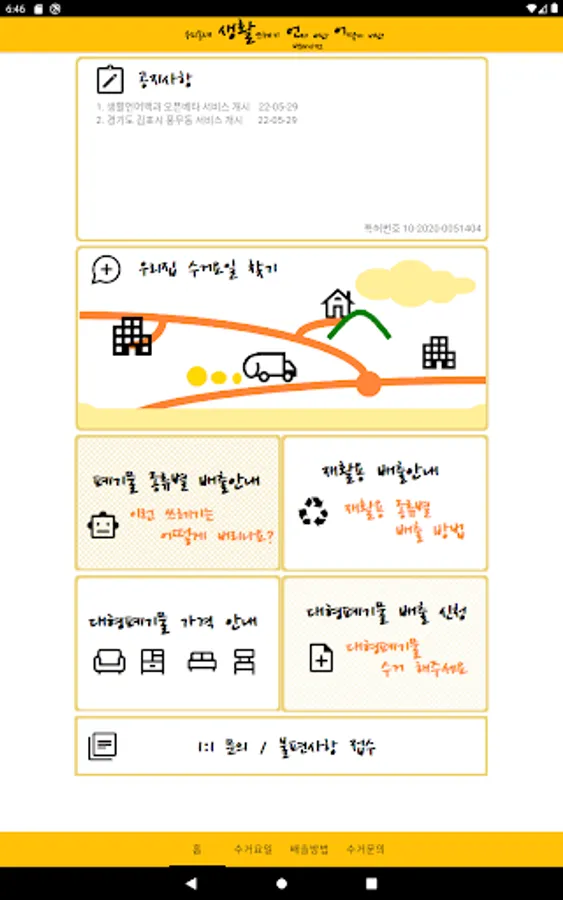 6:46
우리동네 생활쓰레기 언제 어떤 어떻게 버려
배출하나요
공지사항
1. 생활언어백과 오픈베타 서비스 개시 22-05-29
2. 경기도 김포시 풍무동 서비스 개시 22-05-29
특허번호 10-2020-0051404
우리집 수거요일 찾기
폐기물 종류별 배출안내
이런 쓰레기는
어떻게 버리나요?
재활용 배출안내
재활용 종류별
배출 방법
대형폐기물 가격 안내
대형폐기물 배출 신청
대형폐기물
수거 해주세요
1:1 문의 / 불편사항 접수
홈 수거요일 배출방법 수거문의